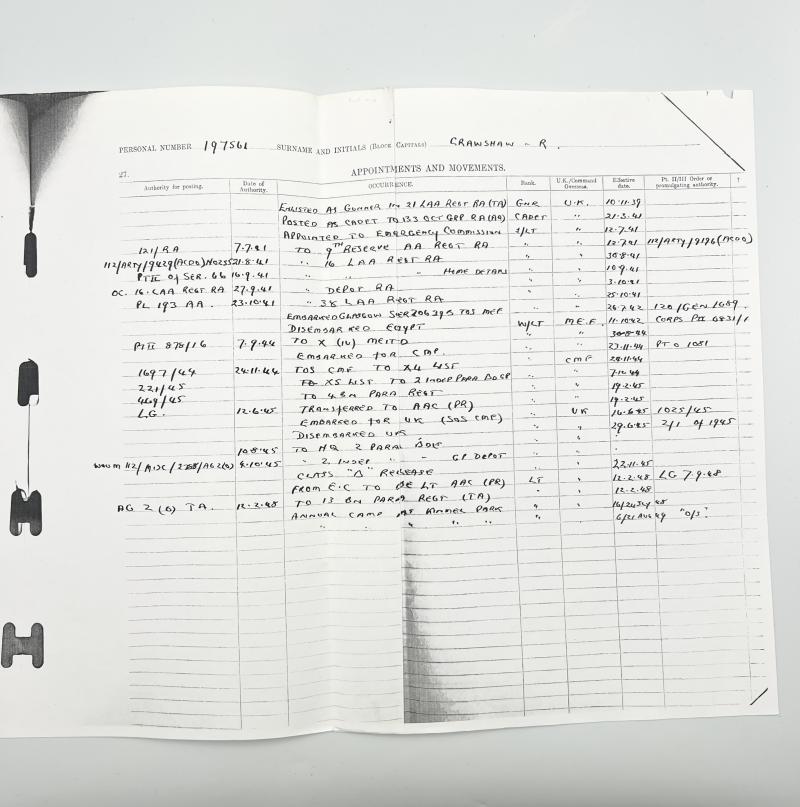 PERSONAL NUMBER 197561 SURNAME AND INITIALS (BLOCK CAPITALS) CRAWSHAW - R.
27. APPOINTMENTS AND MOVEMENTS.
Authority for posting. Date of Authority. OCCURRENCE. Rank. U.K./Command Overseas. Effective date. Pt. II/III Order or promulgating authority.
ENLISTED AS GUNNER IN 21 LAA REGT RA (TA) GNR U.K. 10.11.39
POSTED AS CADET TO 133 OCT GRP RA (AA) CADET " 21.3.41
APPOINTED TO EMERGENCY COMMISSION 2/LT " 12.7.41
121/RA 7.7.41 TO 9TH RESERVE AA REGT RA " " 12.7.41 112/ARTY/9196 (AC00)
112/ARTY/9429 21.8.41 " 16 LAA REGT RA " " 30.8.41
PT II OF SER. 66 10.9.41 " " " HOME DETAILS " " 10.9.41
OC. 16. LAA REGT RA 27.9.41 " DEPOT RA " " 3.10.41
PL 193 AA. 23.10.41 " 38 LAA REGT RA " " 25.10.41
EMBARKED GLASGOW TOS MEF " 26.7.42 120/GEN/1689
DISEMBARKED EGYPT W/LT M.E.F. 11.10.42 CORPS PII 0831/1
PT II 878/16 7.9.44 TO X (IV) " " 30.8.44
EMBARKED FOR CMF. " " 23.11.44 PT O 1051
1697/44 24.11.44 TOS CMF TO X4 LIST " CMF 28.11.44
221/45 TO X5 LIST TO 2 INDEP PARA BDE GP " " 7.12.44
469/45 TO 4 BN PARA REGT " " 19.2.45
LG. 12.6.45 TRANSFERRED TO AAC (PR) " " 19.2.45
EMBARKED FOR UK (SOS CMF) " UK 16.6.45 1025/45
DISEMBARKED UK " " 29.6.45 2/1 OF 1945
10.8.45 TO HQ 2 PARA BDE " "
4.10.45 " 2 INDEP " " GP DEPOT " "
CLASS "A" RELEASE " 22.11.45
FROM E.C TO BE LT AAC (PR) LT " 12.2.48 LG 7.9.48
AG 2 (O) TA. 12.2.48 TO 13 BN PARA REGT (TA) " " 12.2.48
ANNUAL CAMP AT KINMEL PARK " " 48
" " " " " " 6/21 AUG 49 "O/S".